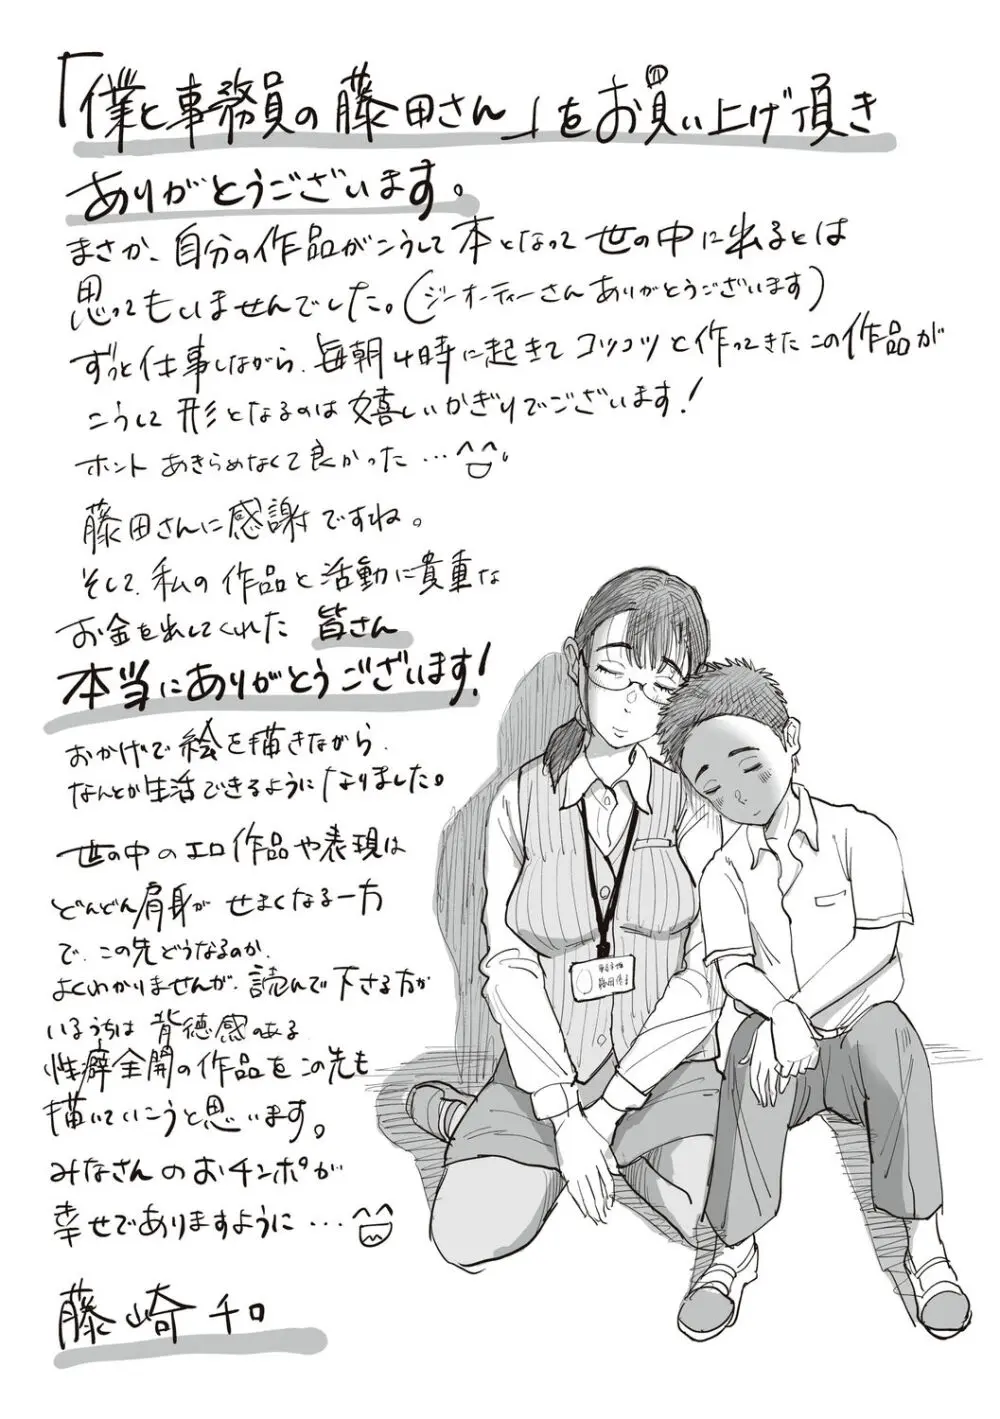 「僕と事務員の藤田さん」をお買い上げ頂き
ありがとうございます。
まさか、自分の作品がこうして本となって世の中に出るとは
思ってもいませんでした。(ジーオーティーさんありがとうございます)
ずっと仕事しながら、毎朝4時に起きてコツコツと作ってきたこの作品が
こうして形となるのは嬉しいかぎりでございます!
ホントあきらめなくて良かった…^^
藤田さんに感謝ですね。
そして、私の作品と活動に貴重な
お金を出してくれた 皆さん
本当にありがとうございます!
おかげで絵を描きながら、
なんとか生活できるようになりました。
世の中のエロ作品や表現は
どんどん肩身がせまくなる一方
で、この先どうなるのか、
よくわかりませんが、読んで下さる方が
いるうちは背徳感のある
性癖全開の作品をこの先も
描いていこうと思います。
みなさんのおチンポが
幸せでありますように…^^
藤崎チロ